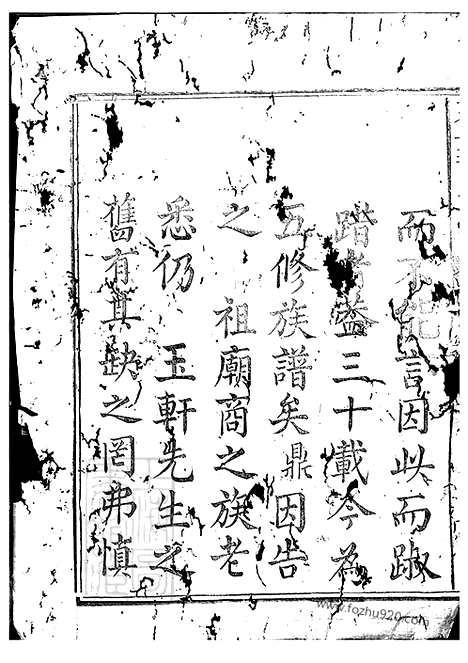 而不能言因此而踧
踖者蓋三十載今為
五修族譜矣鼎因告
之　祖廟商之族老
悉仍　玉軒先生之
舊有其缺之罔弗慎
www.fozhu920.com